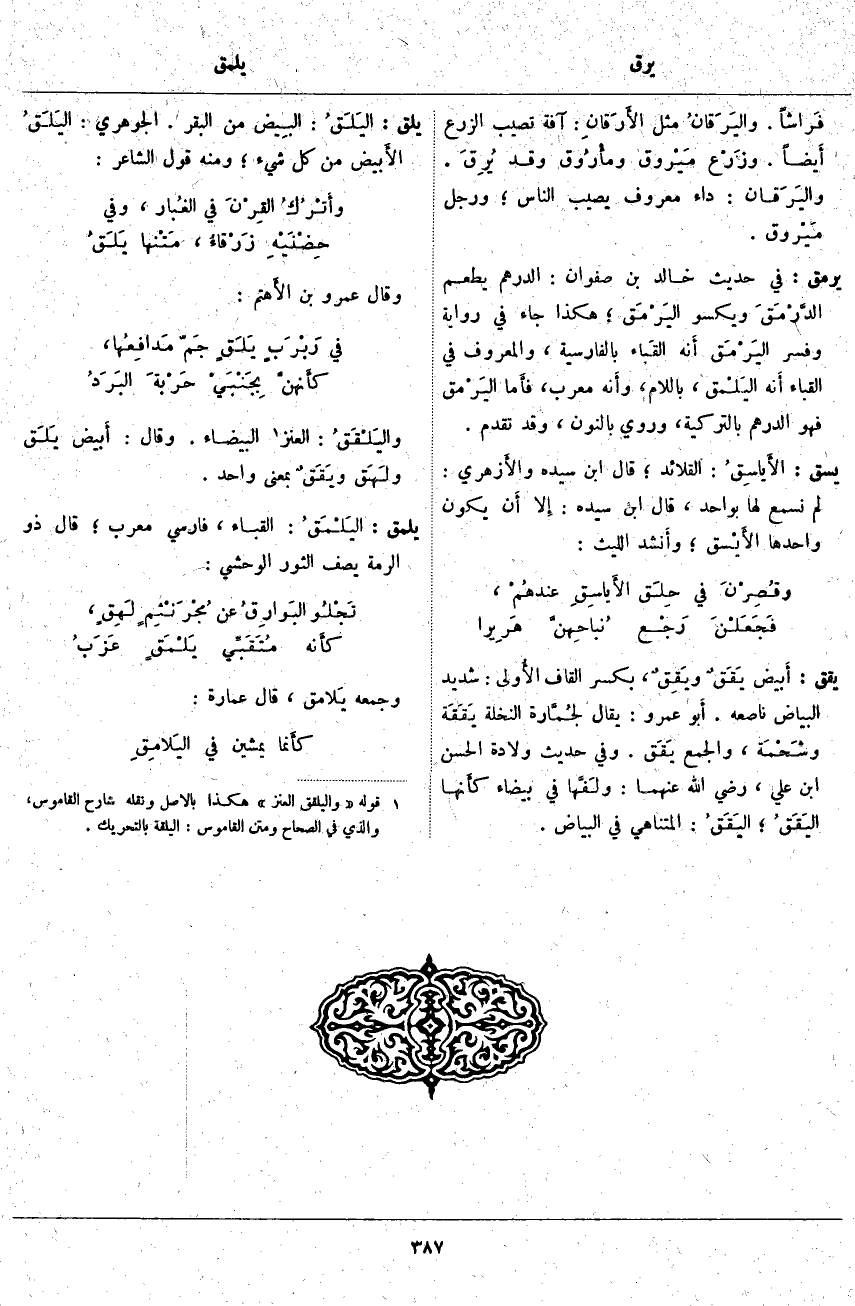 يرق
يلمق
فَراشاً . واليَرَقانُ مثل الأَرَقانِ : آفة تصيب الزرع
أَيضاً . وزَرْع مَيْروق ومأْرُوق وقد يُرِقَ .
واليَرَقان : داء معروف يصيب الناس ؛ ورجل
مَيْروق .
يرمق : في حديث خالد بن صفوان : الدرهم يطعم
الدَّرْمَقَ ويكسو اليَرْمَق ؛ هكذا جاء في رواية
وفسر اليَرْمَق أَنه القَباء بالفارسية ، والمعروف في
القباء أَنه اليَلْمَق ، باللام، وأَنه معرب، فأَما اليَرْمق
فهو الدرهم بالتركية، وروي بالنون ، وقد تقدم .
يسق : الأَياسِقُ : القلائد ؛ قال ابن سيده والأَزهري :
لم نسمع لها بواحد ، قال ابن سيده : إِلا أَن يكون
واحدها الأَيْسق ؛ وأَنشد الليث :
وقُصِرْنَ في حِلَق الأَياسِقِ عندهُمْ ،
فَجَعَلْنَ رَجْع نُباحِهنَّ هَرِيرا
يقق : أَبيض يَقَقٌ ويَقِقٌ، بكسر القاف الأُولى : شديد
البياض ناصعه . أَبو عمرو : يقال لجُمَّارة النخلة يَقَقَة
وشَحْمَة ، والجمع يَقَق . وفي حديث ولادة الحسن
ابن علي ، رضي الله عنهما : ولَفَّها في بيضاء كأَنها
اليَقَقُ ؛ اليَقَقُ : المتناهي في البياض .
يلق : اليَلَقُ : البِيض من البقر . الجوهري : اليَلَقُ
الأَبيض من كل شيء ؛ ومنه قول الشاعر :
وأَتْرُكُ القِرْنَ في الغُبار ، وفي
حِضْنَيْهِ زَرْقاءُ ، مَتْنها يَلَقُ
وقال عمرو بن الأَهتم :
في رَبْرَبٍ يَلَقٍ جَمٍّ مَدافِعُها،
كأَنهنَّ بِجَنْبَيْ حَرْبةَ البَرَدُ
واليَلْقَقُ : العنز١ البيضاء . وقال : أَبيض يَلَق
ولَهَق ويَقَقٌ بمعنى واحد .
يلمق : اليَلْمَقُ : القباء ، فارسي معرب ؛ قال ذو
الرمة يصف الثور الوحشي :
تَجْلُو البَوارِقُ عن مُجْرَنْثِمٍ لَهِقٍ،
كأَنه مُتَقَبِّي يَلْمَقٍ عَزَبُ
وجمعه يَلامق ، قال عمارة :
كأَنما يمشين في اليَلامِقِ
١ قوله « واليلقق العنز » هكذا بالاصل ونقله شارح القاموس،
والذي في الصحاح ومتن القاموس : اليلقة بالتحريك .
٣٨٧